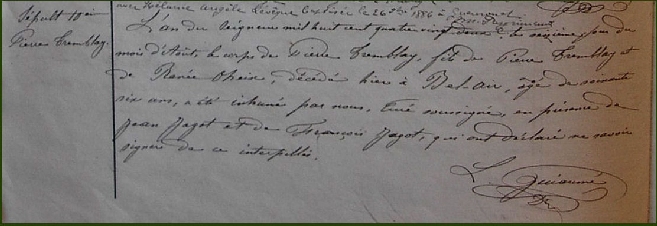 Sépult 10e
Pierre Tremblay.
avec Hélaine Angèle Lévêque le 26 1886 à
L'an du Seigneur mil huit cent quatre vingt deux, le onzième jour du
mois d'Août, le corps de Pierre Tremblay, fils de Pierre Tremblay et
de Renée Chaise, décédé hier à Bel-air, âgé de soixante
six ans, a été inhumé par nous, Curé soussigné, en présence de
Jean Jagot et de François Jagot, qui ont déclaré ne savoir
signer de ce interpellés.
L. Guiaumé